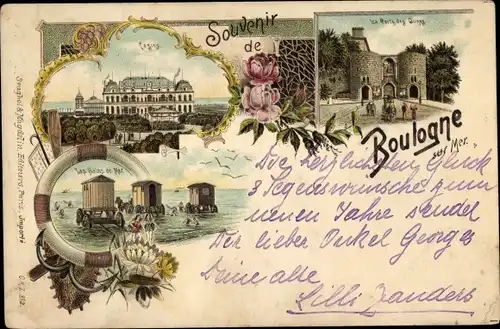 Souvenir
de
Boulogne
sur Mer.
Casino
La Porte des Dunes
Les Bains de Mer
Die herzlichsten Glück
& Segenswünsche zum
neuen Jahre sendet
Dir lieber Onkel Georges
Deine alte
Lilli Zanders
Editeurs, Paris. Importé